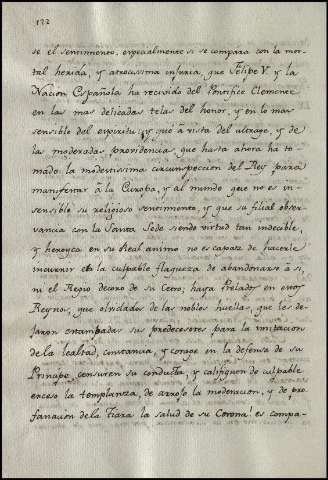 122
se el sentimiento, especialmente si se compara con la mor-
tal herida, y atrocissima injuria, que Felipe V. y la
Nacion Española ha recivido del Pontifice Clemente
en las mas delicadas telas del honor, y en lo mas
sensible del espiritu, y que à vista del ultrage, y de
las moderadas providencias que hasta ahora ha to-
mado la modestissima circunspeccion del Rey para
manifestar à la Europa, y al mundo que no es in-
sensible su religioso sentimiento, y que su filial obser-
vancia con la Santa Sede siendo virtud tan indeleble,
y heroyca en su Real animo no es capaz de hacerle
incurrir en la culpable flaqueza de abandonarse à si,
ni el Regio decoro de su Cetro; haya Prelados en estos
Reynos, que olvidados de las nobles huellas, que les de-
jaron estampadas sus predecesores para la imitacion
de la lealtad, constancia, y corage en la defensa de su
Principe, censuren su conducta, y califiquen de culpable
exceso la templanza, de arrojo la moderacion, y de pro-
fanacion de la Tiara la salud de su Corona! es compa-